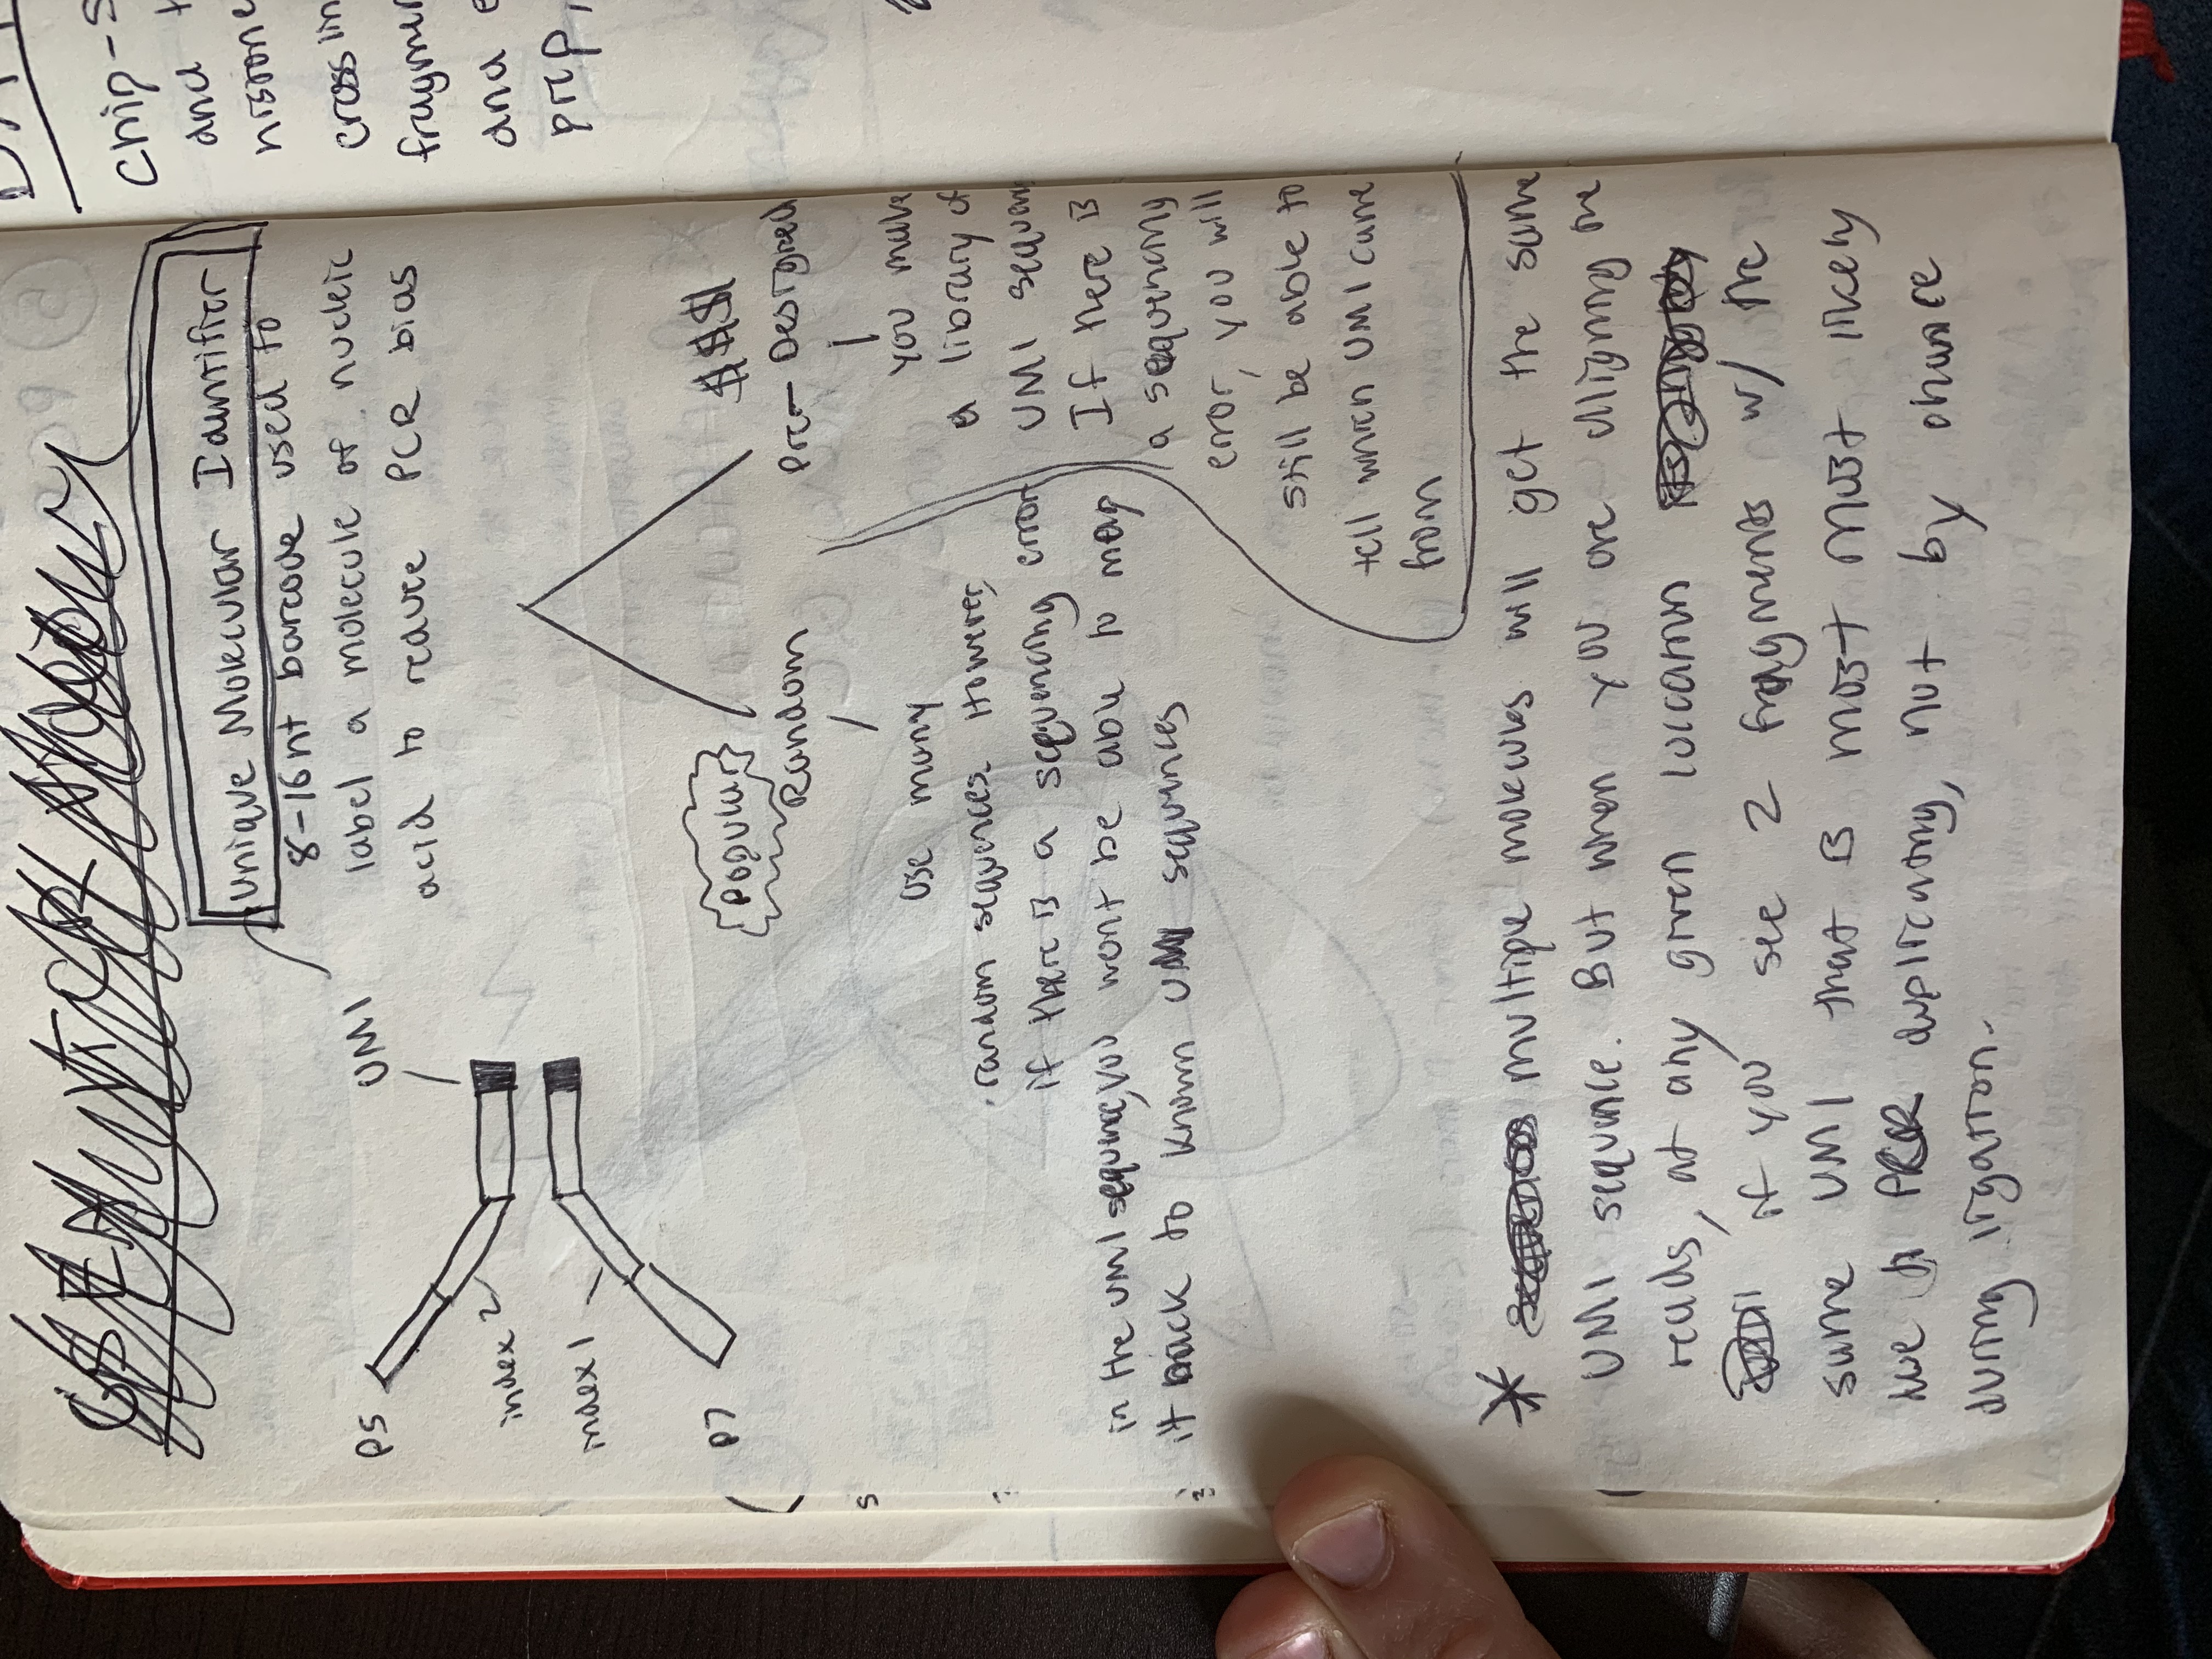 Unique Molecular Identifier
8-16nt barcode used to
label a molecule of nucleic
acid to reduce PCR bias
P5
UMI
index 2
index 1
P7
Popular
Random
$$$
Pre-Designed
use many
random sequences. However,
if there is a sequencing error
in the UMI sequence, you wont be able to map
it back to known UMI sequences
you make
a library of
UMI
If there is
a sequencing
error, you will
still be able to
tell which UMI came
from
* multiple molecules will get the same
UMI sequence. But when you are aligning the
reads, at any given loccation
if you see 2 fragments w/ the
same UMI that is most most likely
due to PCR duplicating, not by chance
during ligation.
DA
Chip-S
and t
histone
crosslin
fragmen
and e
prep,